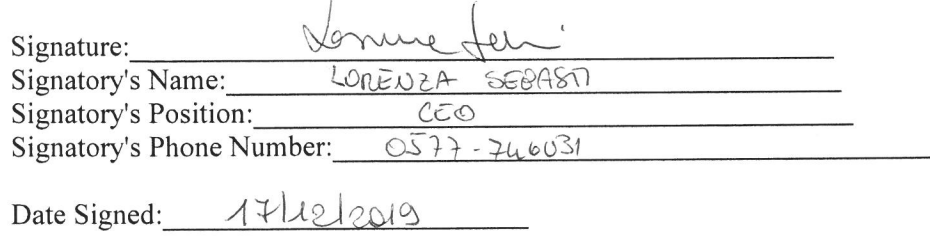 Signature:
Signatory's Name: LORENZA SEBASTI
Signatory's Position: CEO
Signatory's Phone Number: 0577-746031
Date Signed: 17/12/2019